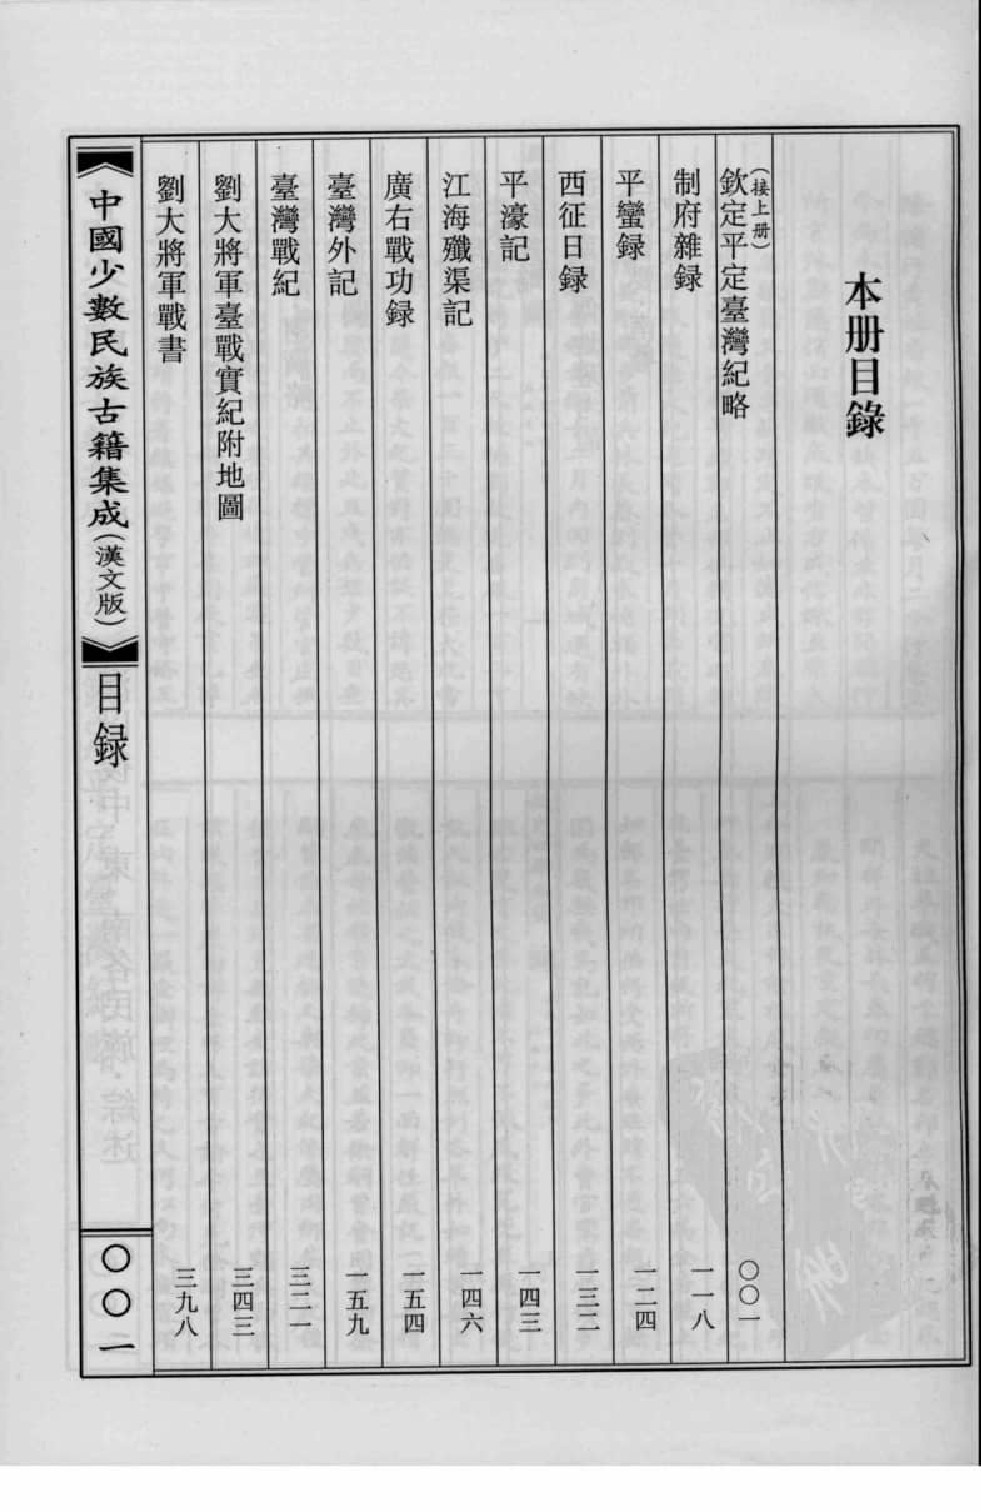 本册目錄
(接上册)
欽定平定臺灣紀略 〇〇一
制府雜録 一一八
平蠻録 一二四
西征日録 一三二
平濠記 一四三
江海殲渠記 一四六
廣右戰功録 一五四
臺灣外記 一五九
臺灣戰紀 三二一
劉大將軍臺戰實紀附地圖 三四三
劉大將軍戰書 三九八
中國少數民族古籍集成(漢文版)
目録
〇〇一